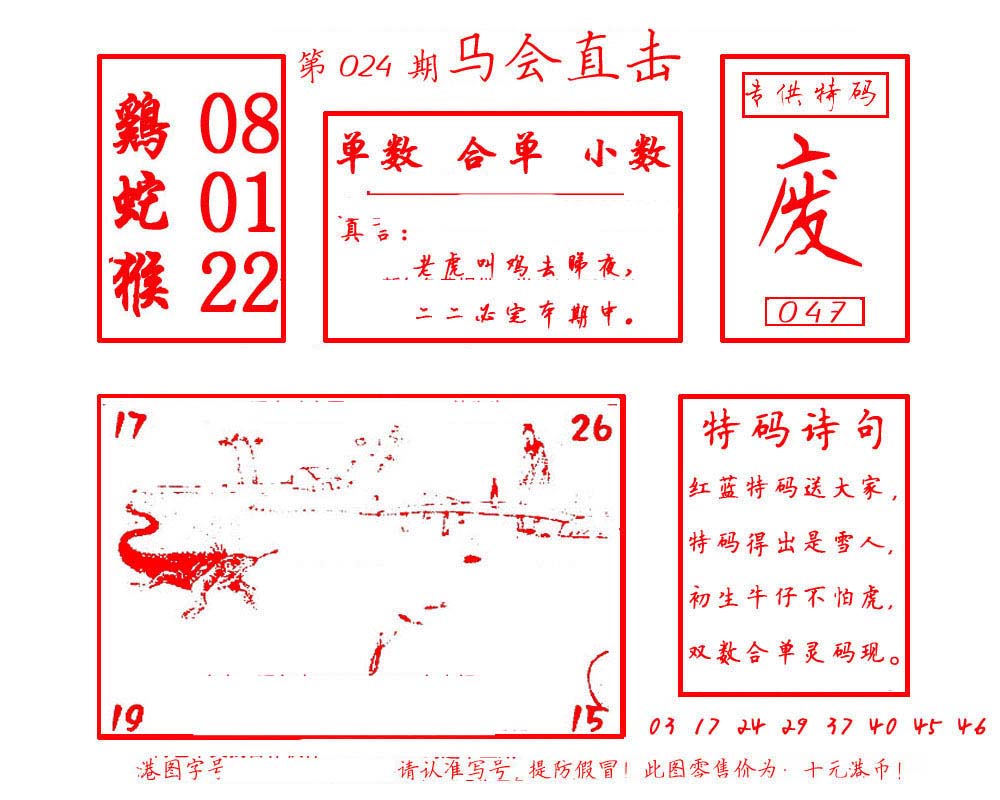 第 024 期 马会直击
鷄 08
蛇 01
猴 22
单数 合单 小数
真言：
老虎叫鸡去睇夜，
二二必定本期中。
专供特码
废
047
17
26
19
15
特码诗句
红蓝特码送大家，
特码得出是雪人，
初生牛仔不怕虎，
双数合单灵码现。
03 17 24 29 37 40 45 46
港图字号
请认准写号，提防假冒！此图零售价为·十元港币！